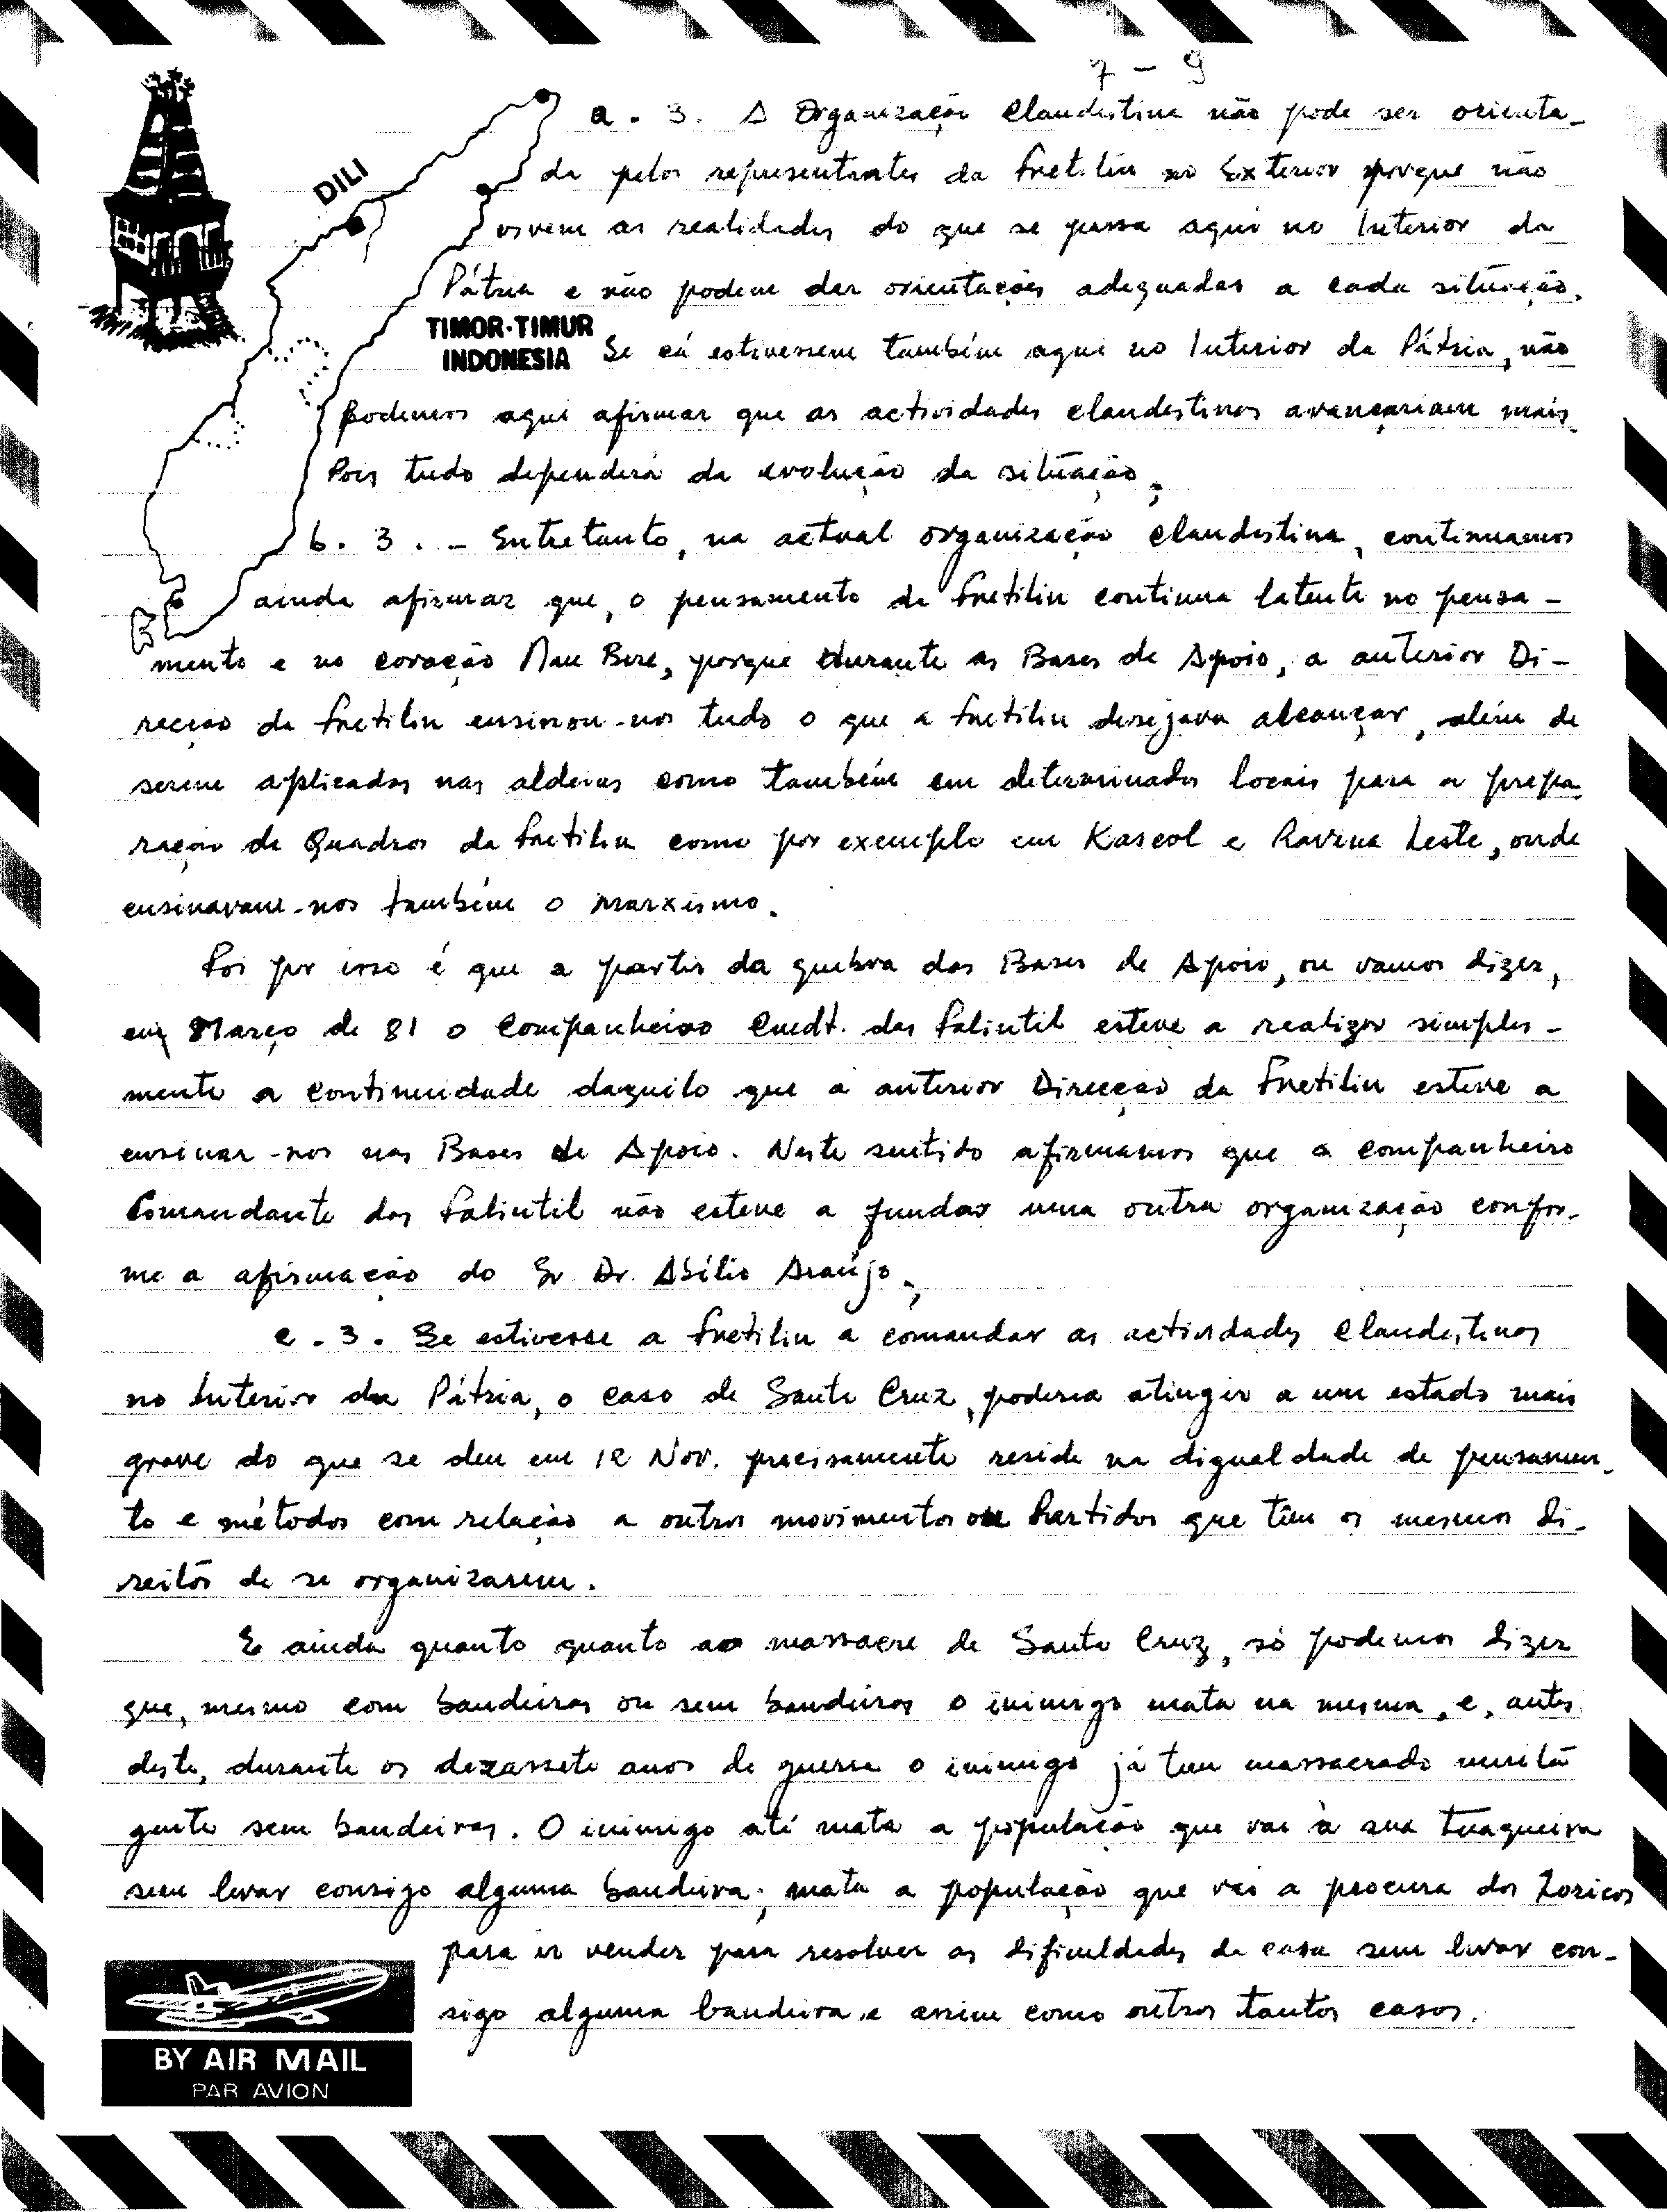 7 - 9
a. 3. A Organização Clandestina não pode ser orienta-
DILI
da pelos representantes da Fretilin no Exterior porque não
vivem as realidades do que se passa aqui no Interior da
Pátria e não podem dar orientações adequadas a cada situação.
TIMOR-TIMUR
INDONESIA
Se cá estivessem também aqui no Interior da Pátria, não
podemos aqui afirmar que as actividades clandestinas avançariam mais.
Pois tudo dependerá da evolução da situação;
b. 3. - Entretanto, na actual organização clandestina, continuamos
ainda afirmar que, o pensamento da Fretilin continua latente no pensa-
mento e no coração Mau Bere, porque durante as Bases de Apoio, a anterior Di-
recção da Fretilin ensinou-nos tudo o que a Fretilin desejava alcançar, além de
serem aplicados nas aldeias como também em determinados locais para a prepa-
ração de Quadros da Fretilin como por exemplo em Kaseol e Ravina Leste, onde
ensinavam-nos também o marxismo.
Foi por isso é que a partir da quebra das Bases de Apoio, ou vamos dizer,
em Março de 81 o Companheiro Cmdt. das Falintil esteve a realizar simples-
mente a continuidade daquilo que a anterior Direcção da Fretilin esteve a
ensinar-nos nas Bases de Apoio. Neste sentido afirmamos que o companheiro
Comandante das Falintil não esteve a fundar uma outra organização confor-
me a afirmação do Sr. Dr. Abílio Araújo;
c. 3. Se estivesse a Fretilin a comandar as actividades Clandestinas
no Interior da Pátria, o caso de Santa Cruz, poderia atingir a um estado mais
grave do que se deu em 12 Nov. precisamente reside na digualdade de pensamen-
to e métodos com relação a outros movimentos ou Partidos que têm os mesmos di-
reitos de se organizarem.
E ainda quanto quanto ao massacre de Santa Cruz, só podemos dizer
que, mesmo com bandeiras ou sem bandeiras o inimigo mata na mesma, e, antes
deste, durante os dezassete anos de guerra o inimigo já tem massacrado muita
gente sem bandeiras. O inimigo até mata a população que vai à sua tuaqueira
sem levar consigo alguma bandeira; mata a população que vai a procura dos Loricos
para ir vender para resolver as dificuldades de casa sem levar con-
sigo alguma bandeira e assim como outros tantos casos.
BY AIR MAIL
PAR AVION